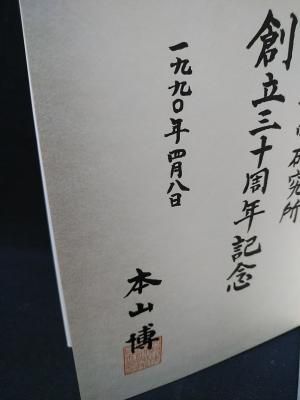 研究所
創立三十周年記念
一九九〇年四月八日
本山博